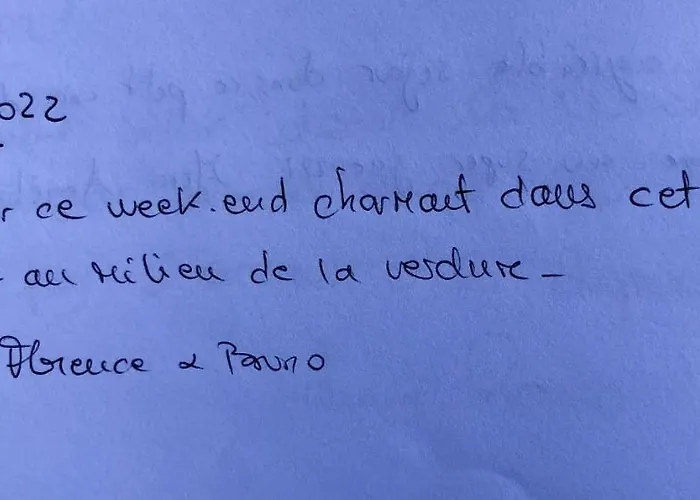 022
r ce week.end charmant dans cet
au milieu de la verdure -
Florence & Bruno